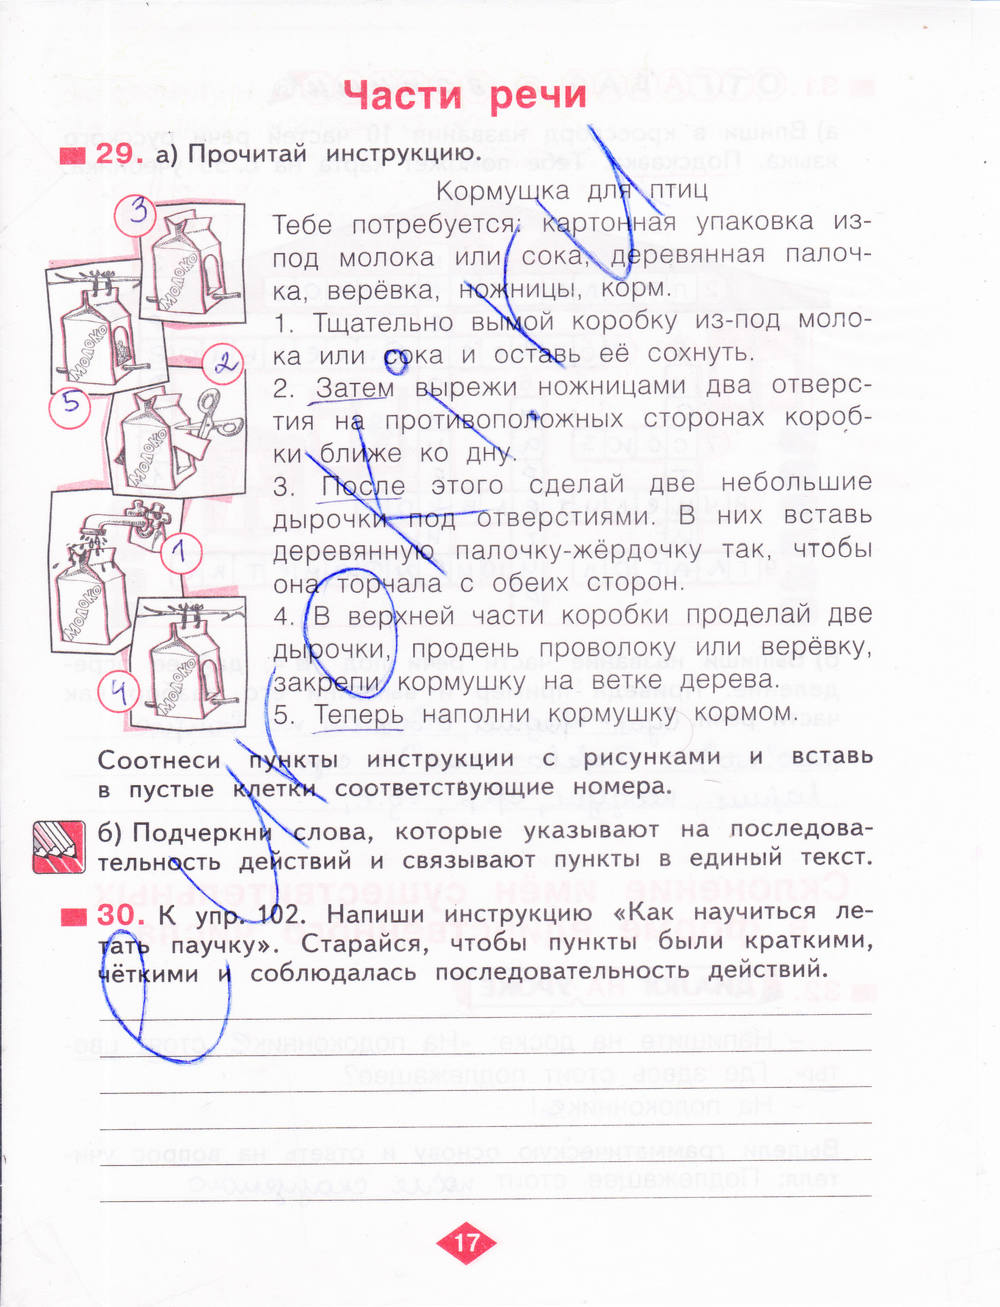 Части речи
29. а) Прочитай инструкцию.
Кормушка для птиц
Тебе потребуется: картонная упаковка из-
под молока или сока, деревянная палоч-
ка, верёвка, ножницы, корм.
1. Тщательно вымой коробку из-под моло-
ка или сока и оставь её сохнуть.
2. Затем вырежи ножницами два отверс-
тия на противоположных сторонах короб-
ки ближе ко дну.
3. После этого сделай две небольшие
дырочки под отверстиями. В них вставь
деревянную палочку-жёрдочку так, чтобы
она торчала с обеих сторон.
4. В верхней части коробки проделай две
дырочки, продень проволоку или верёвку,
закрепи кормушку на ветке дерева.
5. Теперь наполни кормушку кормом.
3
МОЛОКО
МОЛОКО
5
2
МОЛОКО
1
МОЛОКО
4
МОЛОКО
Соотнеси пункты инструкции с рисунками и вставь
в пустые клетки соответствующие номера.
б) Подчеркни слова, которые указывают на последова-
тельность действий и связывают пункты в единый текст.
30. К упр. 102. Напиши инструкцию «Как научиться ле-
тать паучку». Старайся, чтобы пункты были краткими,
чёткими и соблюдалась последовательность действий.
17